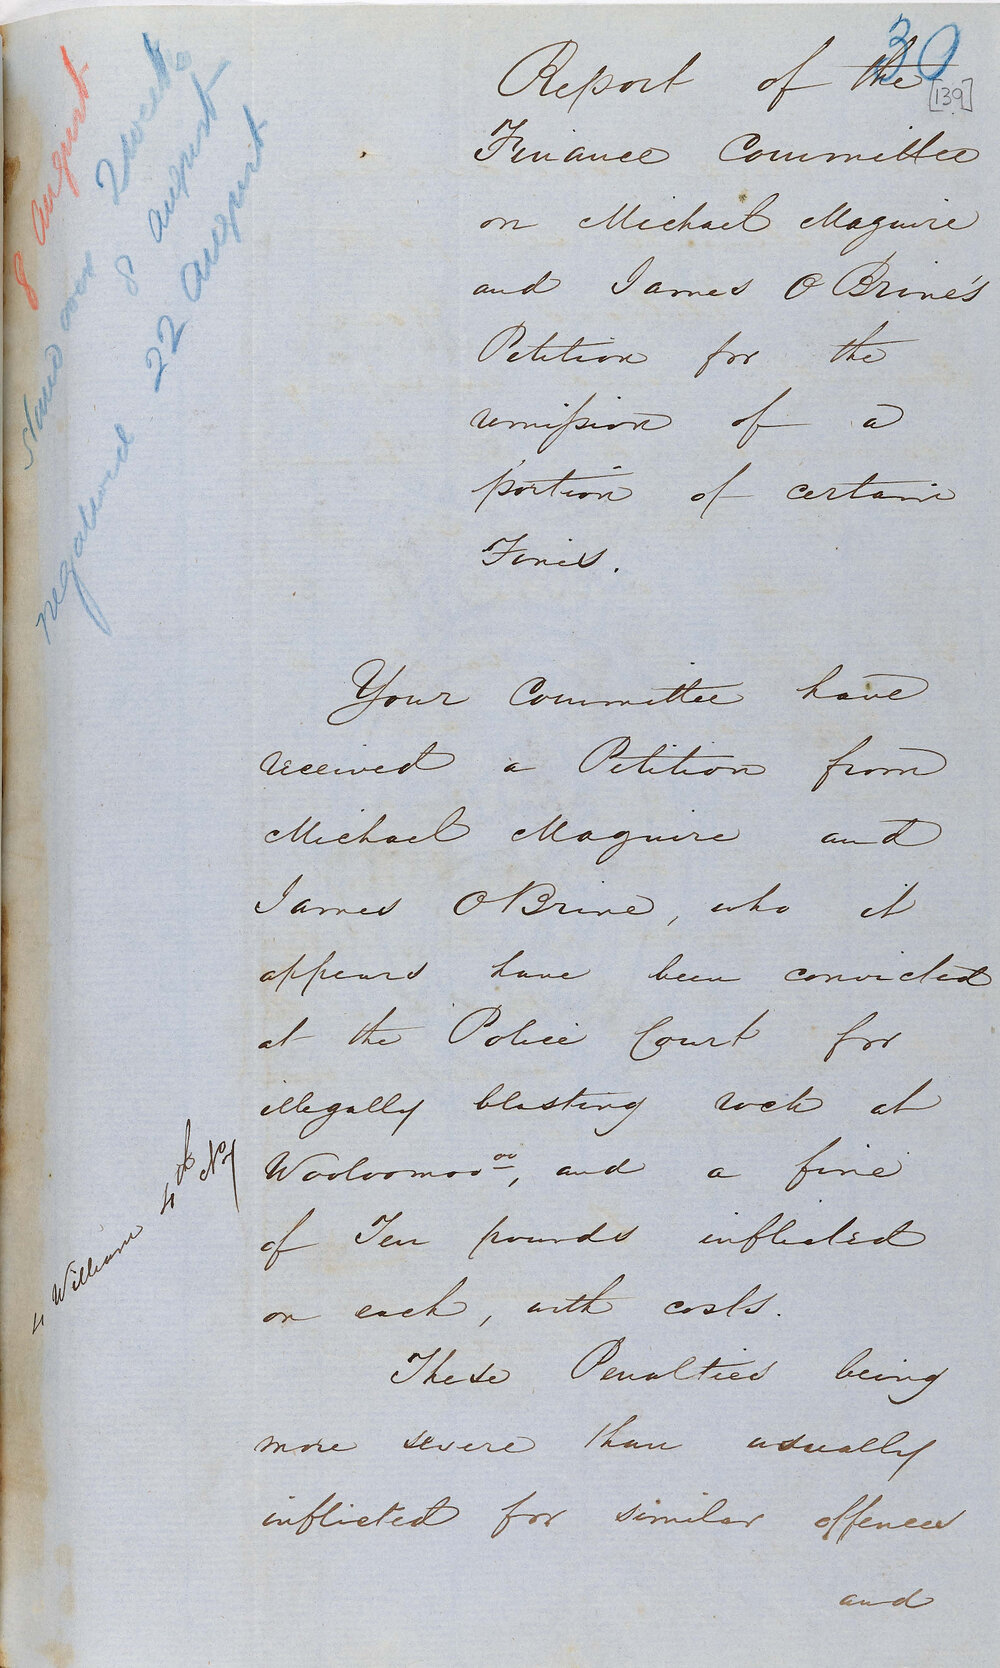 30
[139]
8 August
Stand over 2 weeks
8 August
negatived 22 August
Report of the
Finance Committee
on Michael Maguire
and James O'Brine's
Petition for the
remission of a
portion of certain
Fines.
Your Committee have
received a Petition from
Michael Maguire and
James O'Brine, who it
appears have been convicted
at the Police Court for
illegally blasting rock at
Wooloomooᵒᵒ, and a fine
of Ten pounds inflicted
on each, with costs.
4 William 4th No 7
These Penalties being
more severe than usually
inflicted for similar offences
and